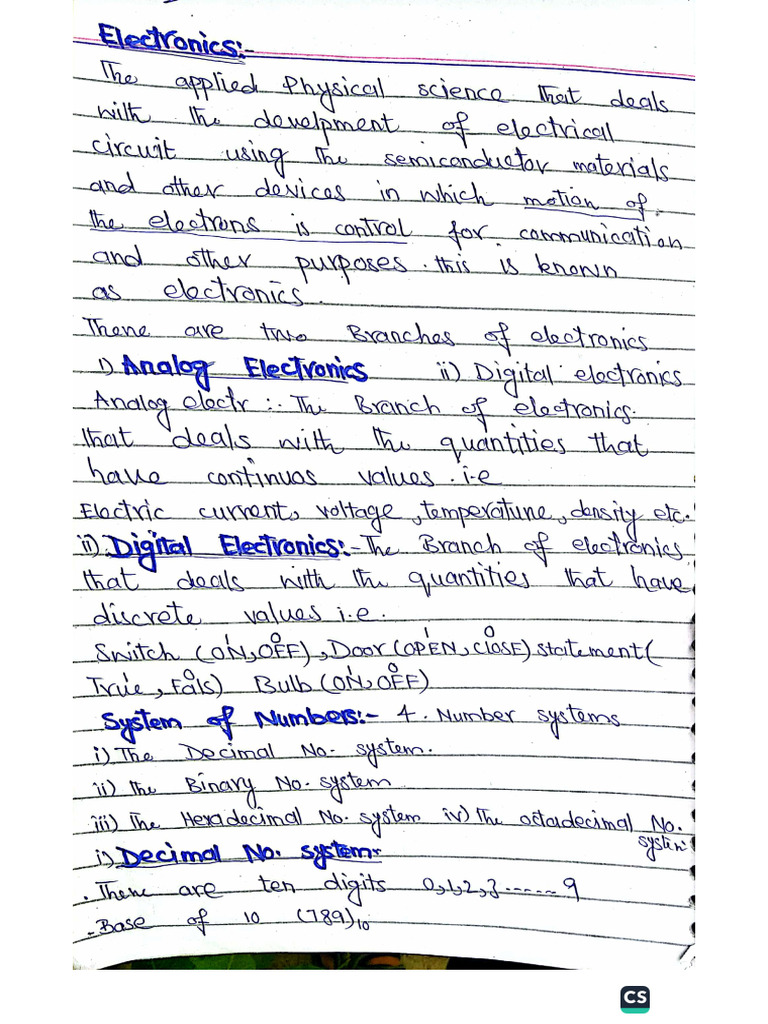 Electronics:-
The applied Physical science that deals
with the devlpment of electrical
circuit using the semiconductor materials
and other devices in which motion of
the electrons is control for communication
and other purposes. this is known
as electronics.
There are two Branches of electronics
i) Analog Electronics ii) Digital electronics
Analog electr :- The Branch of electronics.
that deals with the quantities that
have continuos values. i-e
Electric current, voltage, temperature, density etc.
ii) Digital Electronics:- The Branch of electronics
that deals with the quantities that have
discrete values i.e.
1 0 1 0
Switch (ON, OFF), Door (OPEN, CLOSE) statement (
0 1 0
True, Fals) Bulb (ON, OFF)
System of Numbers:- 4. Number systems
i) The Decimal No. system.
ii) the Binary No. system
iii) The Hexadecimal No. system iv) The octadecimal No.
system
i) Decimal No. system:-
. There are ten digits 0,1,2,3......9
- Base of 10 (789)10
CS